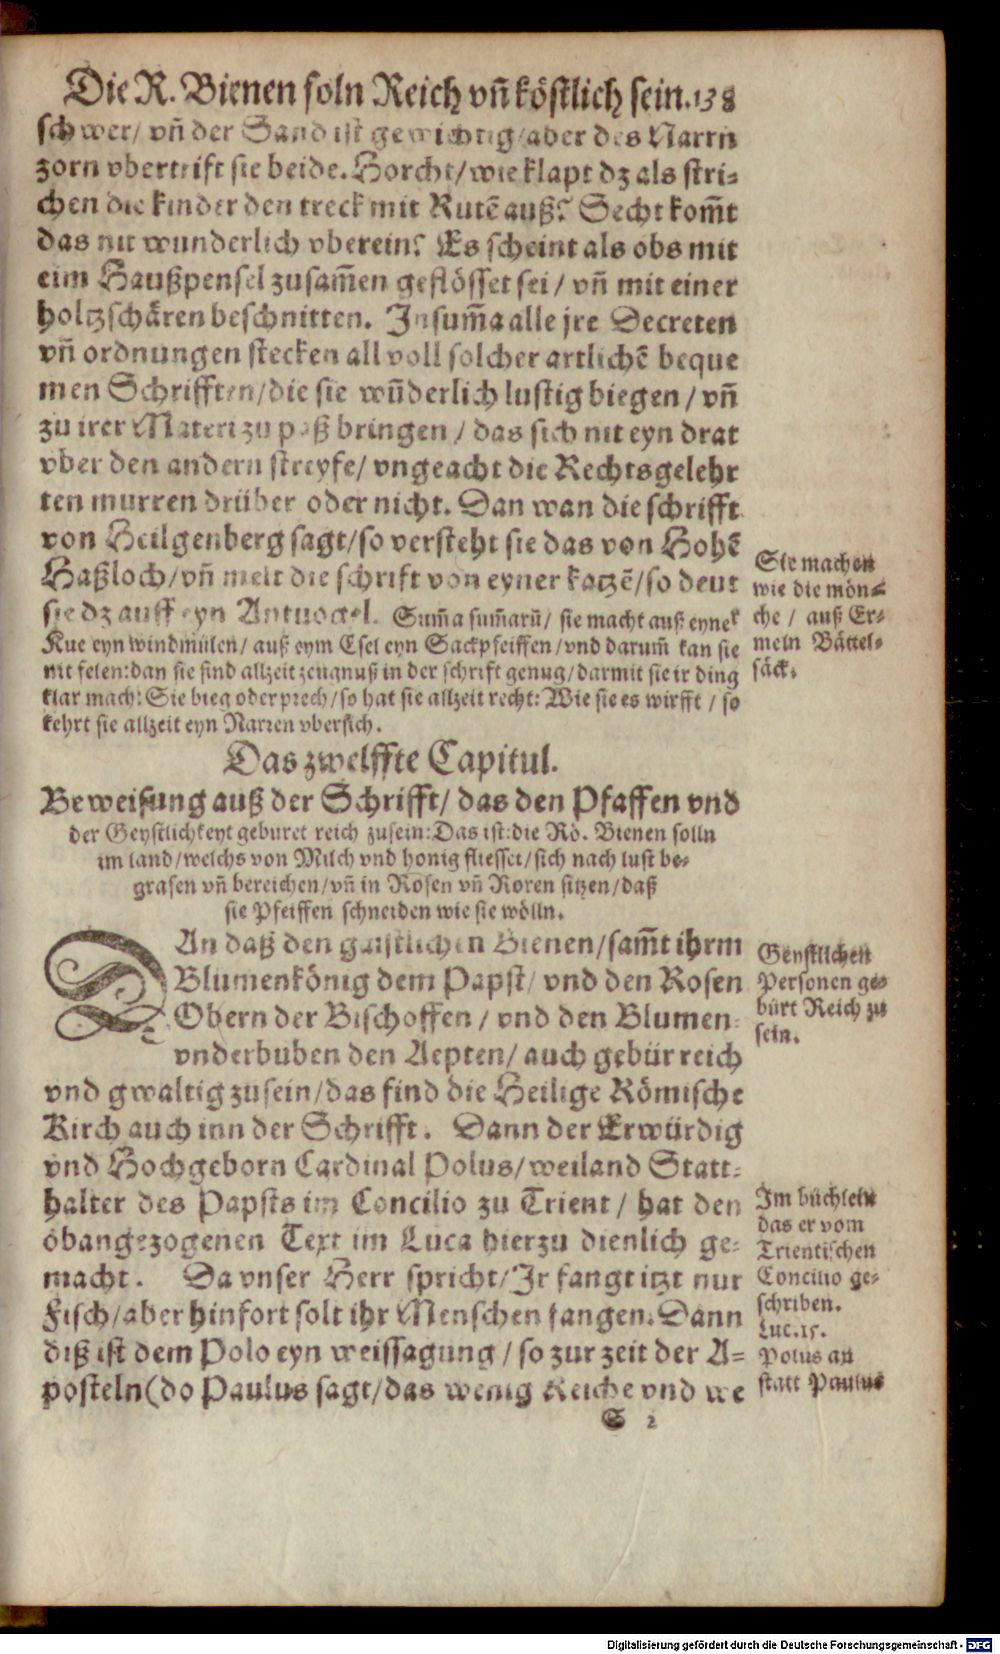 Die R. Bienen soln Reich vñ köstlich sein. 138
schwer/ vñ der Sand ist gewichtig/ aber des Narrn
zorn vbertrift sie beide. Horcht/ wie klapt dz als stri-
chen die kinder den treck mit Rutẽ auß? Secht kom̃t
das nit wunderlich vberein? Es scheint als obs mit
eim Haußpensel zusam̃en geflösset sei/ vñ mit einer
holtzschären beschnitten. In sum̃a alle jre Decreten
vñ ordnungen stecken all voll solcher artlichẽ beque
men Schrifften/ die sie wũderlich lustig biegen/ vñ
zu irer Materi zu paß bringen/ das sich nit eyn drat
vber den andern streyfe/ vngeacht die Rechtsgelehr
ten murren drüber oder nicht. Dan wan die schrifft
von Heilgenberg sagt/ so versteht sie das von Hohẽ
Haßloch/ vñ melt die schrift von eyner katzẽ/ so deut
sie dz auff eyn Antvogel. Sum̃a sum̃arũ/ sie macht auß eyner
Kue eyn windmülen/ auß eym Esel eyn Sackpfeiffen/ vnd darum̃ kan sie
nit felen: dan sie sind allzeit zeugnuß in der schrift genug/ darmit sie ir ding
klar mach: Sie bieg oder prech/ so hat sie allzeit recht: Wie sie es wirfft/ so
kehrt sie allzeit eyn Narren vbersich.
Sie machen
wie die mön-
che/ auß Er-
meln Bättel-
säck.
Das zwelffte Capitul.
Beweisung auß der Schrifft/ das den Pfaffen vnd
der Geystlichkeyt gebüret reich zusein: Das ist: die Rö. Bienen solln
im land/ welchs von Milch vnd honig fliesset/ sich nach lust be-
grasen vñ bereichen/ vñ in Rosen vñ Roren sitzen/ daß
sie Pfeiffen schneiden wie sie wölln.
DAn daß den gaistlichen Bienen/ sam̃t ihrm
Blumenkönig dem Papst/ vnd den Rosen
Obern der Bischoffen/ vnd den Blumen-
vnderbuben den Aepten/ auch gebür reich
vnd gwaltig zusein/ das find die Heilige Römische
Kirch auch inn der Schrifft. Dann der Erwürdig
vnd Hochgeborn Cardinal Polus/ weiland Statt-
halter des Papsts im Concilio zu Trient/ hat den
obangezogenen Text im Luca hierzu dienlich ge-
macht. Da vnser Herr spricht/ Ir fangt itzt nur
Fisch/ aber hinfort solt ihr Menschen fangen. Dann
diß ist dem Polo eyn weissagung/ so zur zeit der A-
posteln (do Paulus sagt/ das wenig Reiche vnd we
Geystlichen
Personen ge-
bürt Reich zu
sein.
Im büchlein
das er vom
Trientischen
Concilio ge-
schriben.
Luc. 15.
Polus an
statt Paulus
S 2
Digitalisierung gefördert durch die Deutsche Forschungsgemeinschaft - DFG